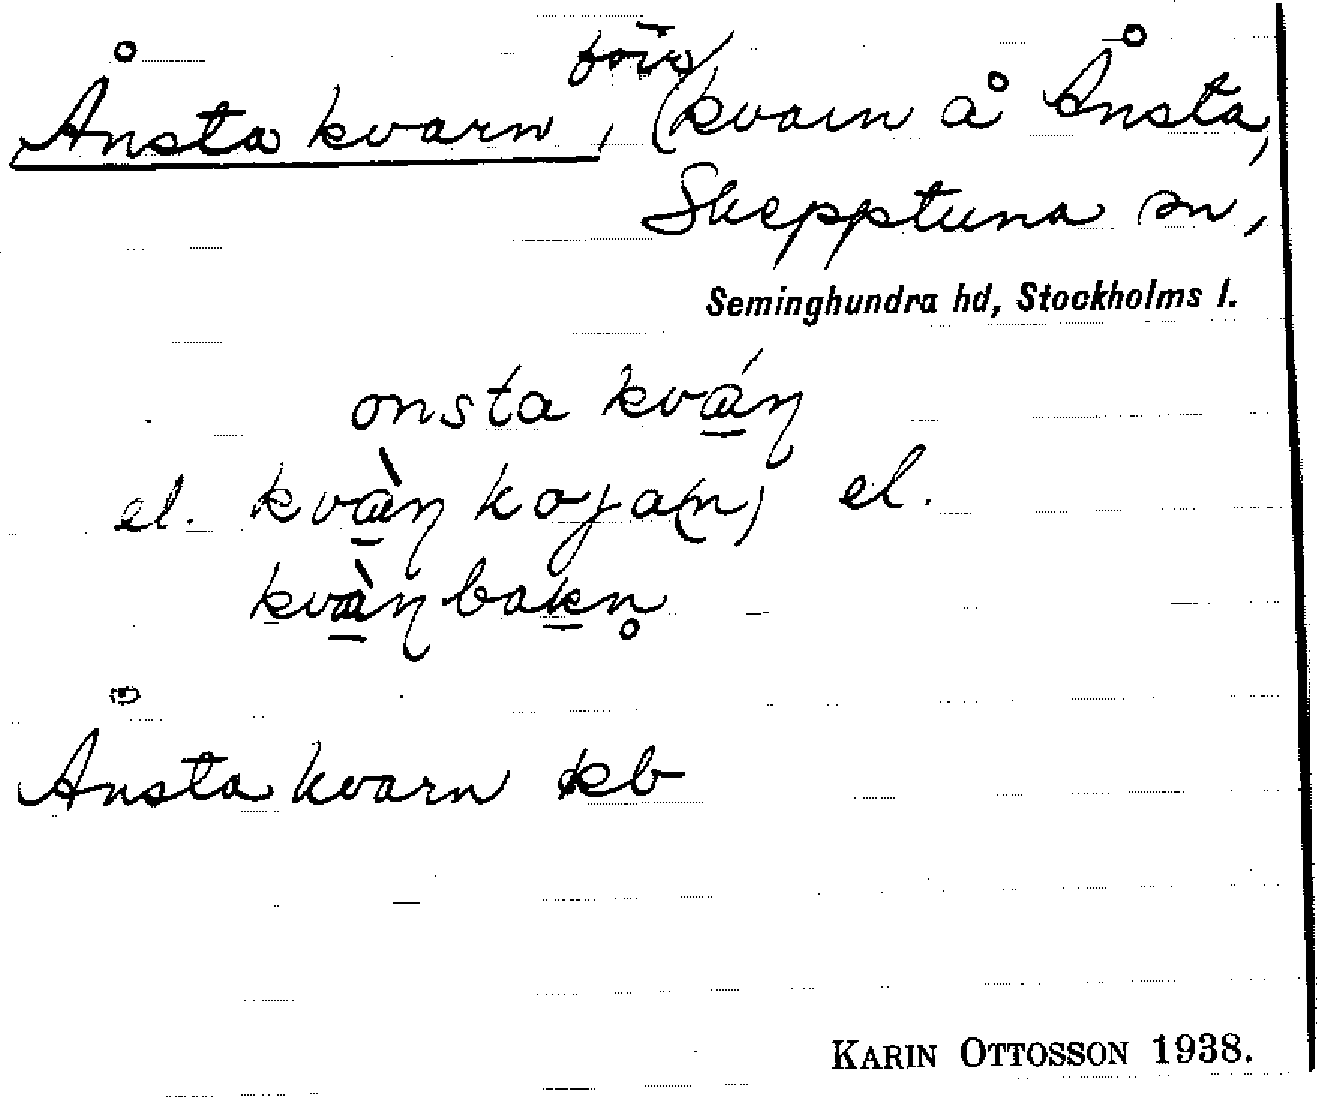 Ånsta kvarn, förs (kvarn å Ånsta,
Skepptuna sn,
Seminghundra hd, Stockholms l.
onsta kván
el. kvàn koja(n) el.
kvànbakn̥
Ånsta kvarn kb
KARIN OTTOSSON 1938.